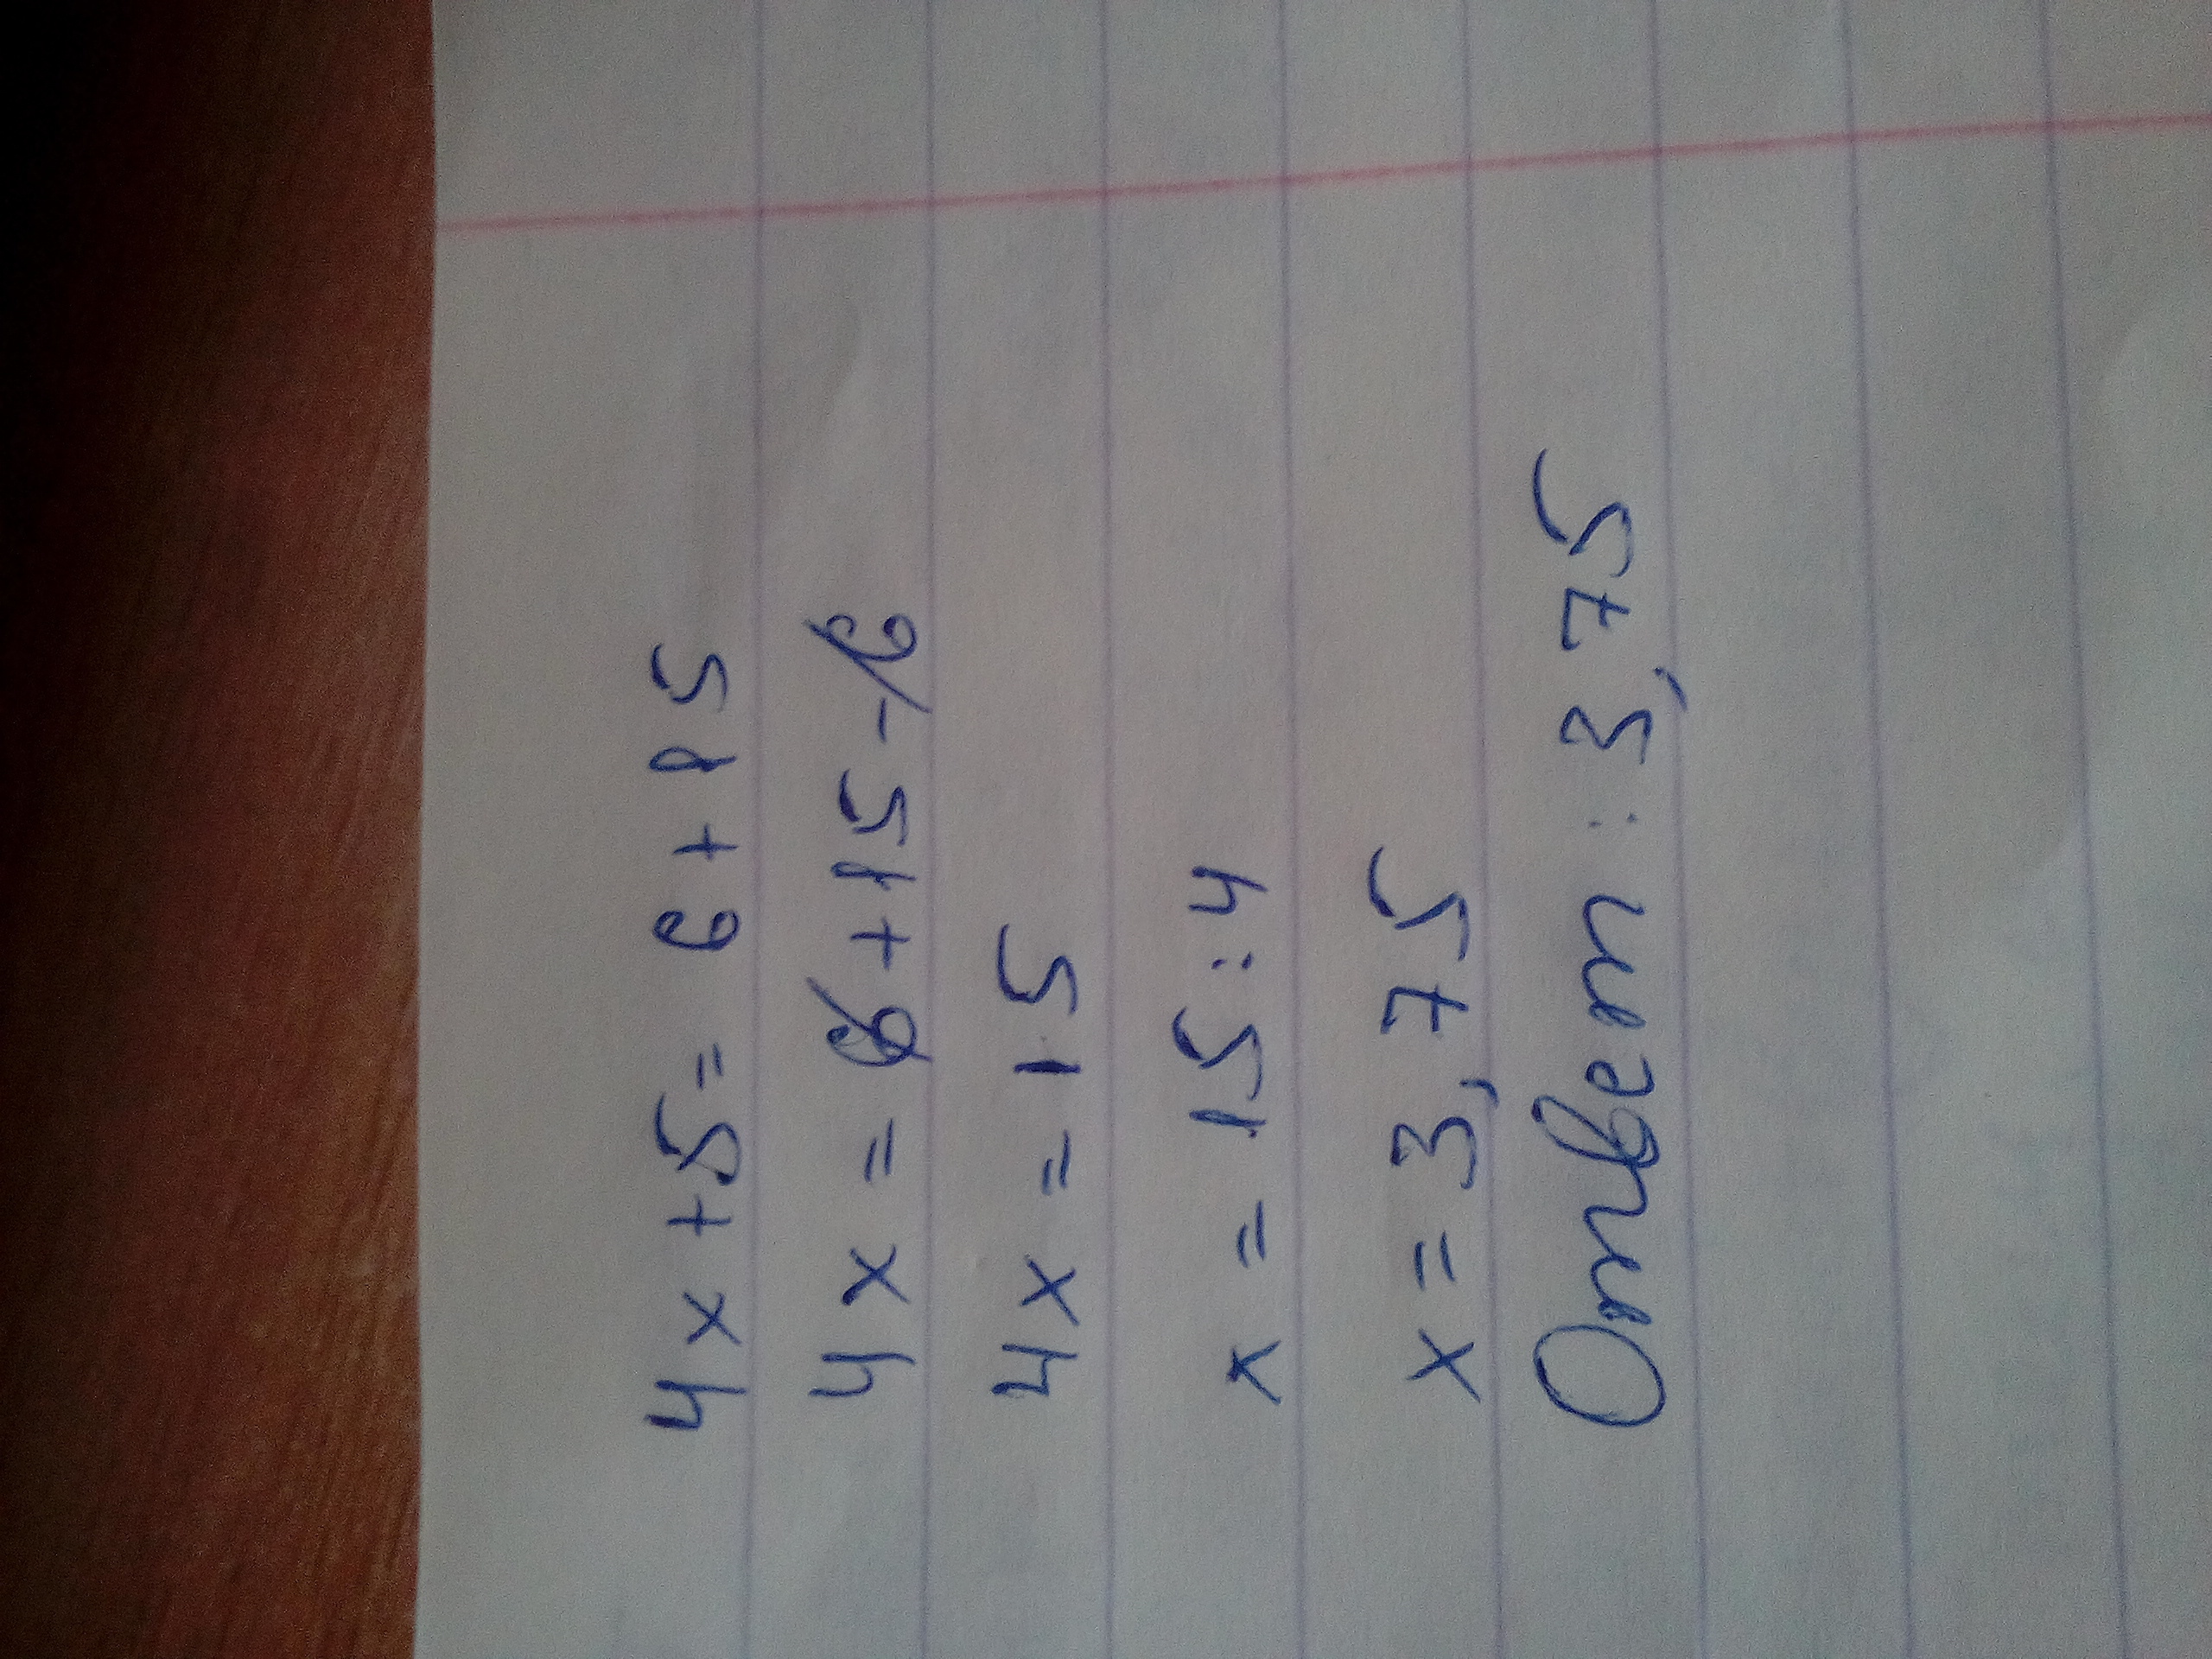 4x + 5 = 9 + 15
4x = 9 + 15 - 9
4x = 15
x = 15 : 4
x = 3,75
Ответ : 3,75